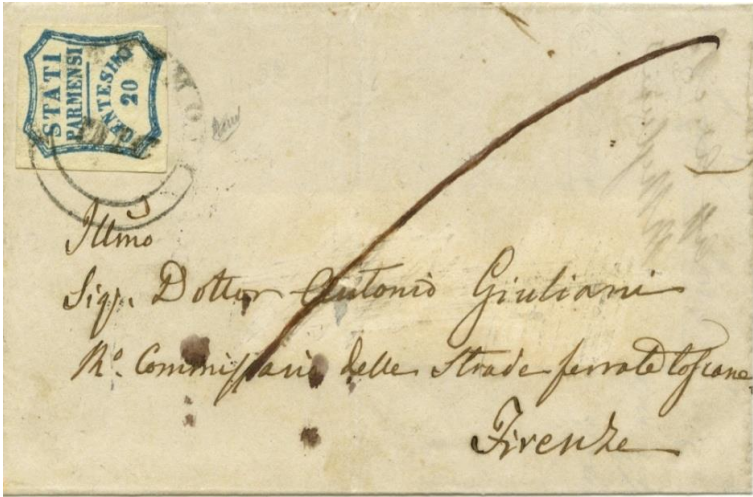 STATI
PARMENSI
CENTESIMI
20
Illmo
Sigr. Dottor Antonio Giuliani
Ro. Commissario delle Strade ferrate toscane
Firenze